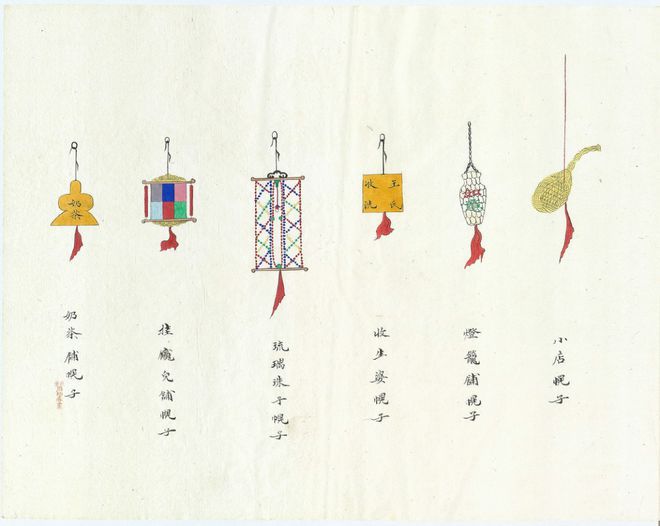 王氏
收洗
奶茶
小店幌子
燈籠舖幌子
收生婆幌子
琉璃珠子幌子
挂龕兒舖幌子
奶茶舖幌子